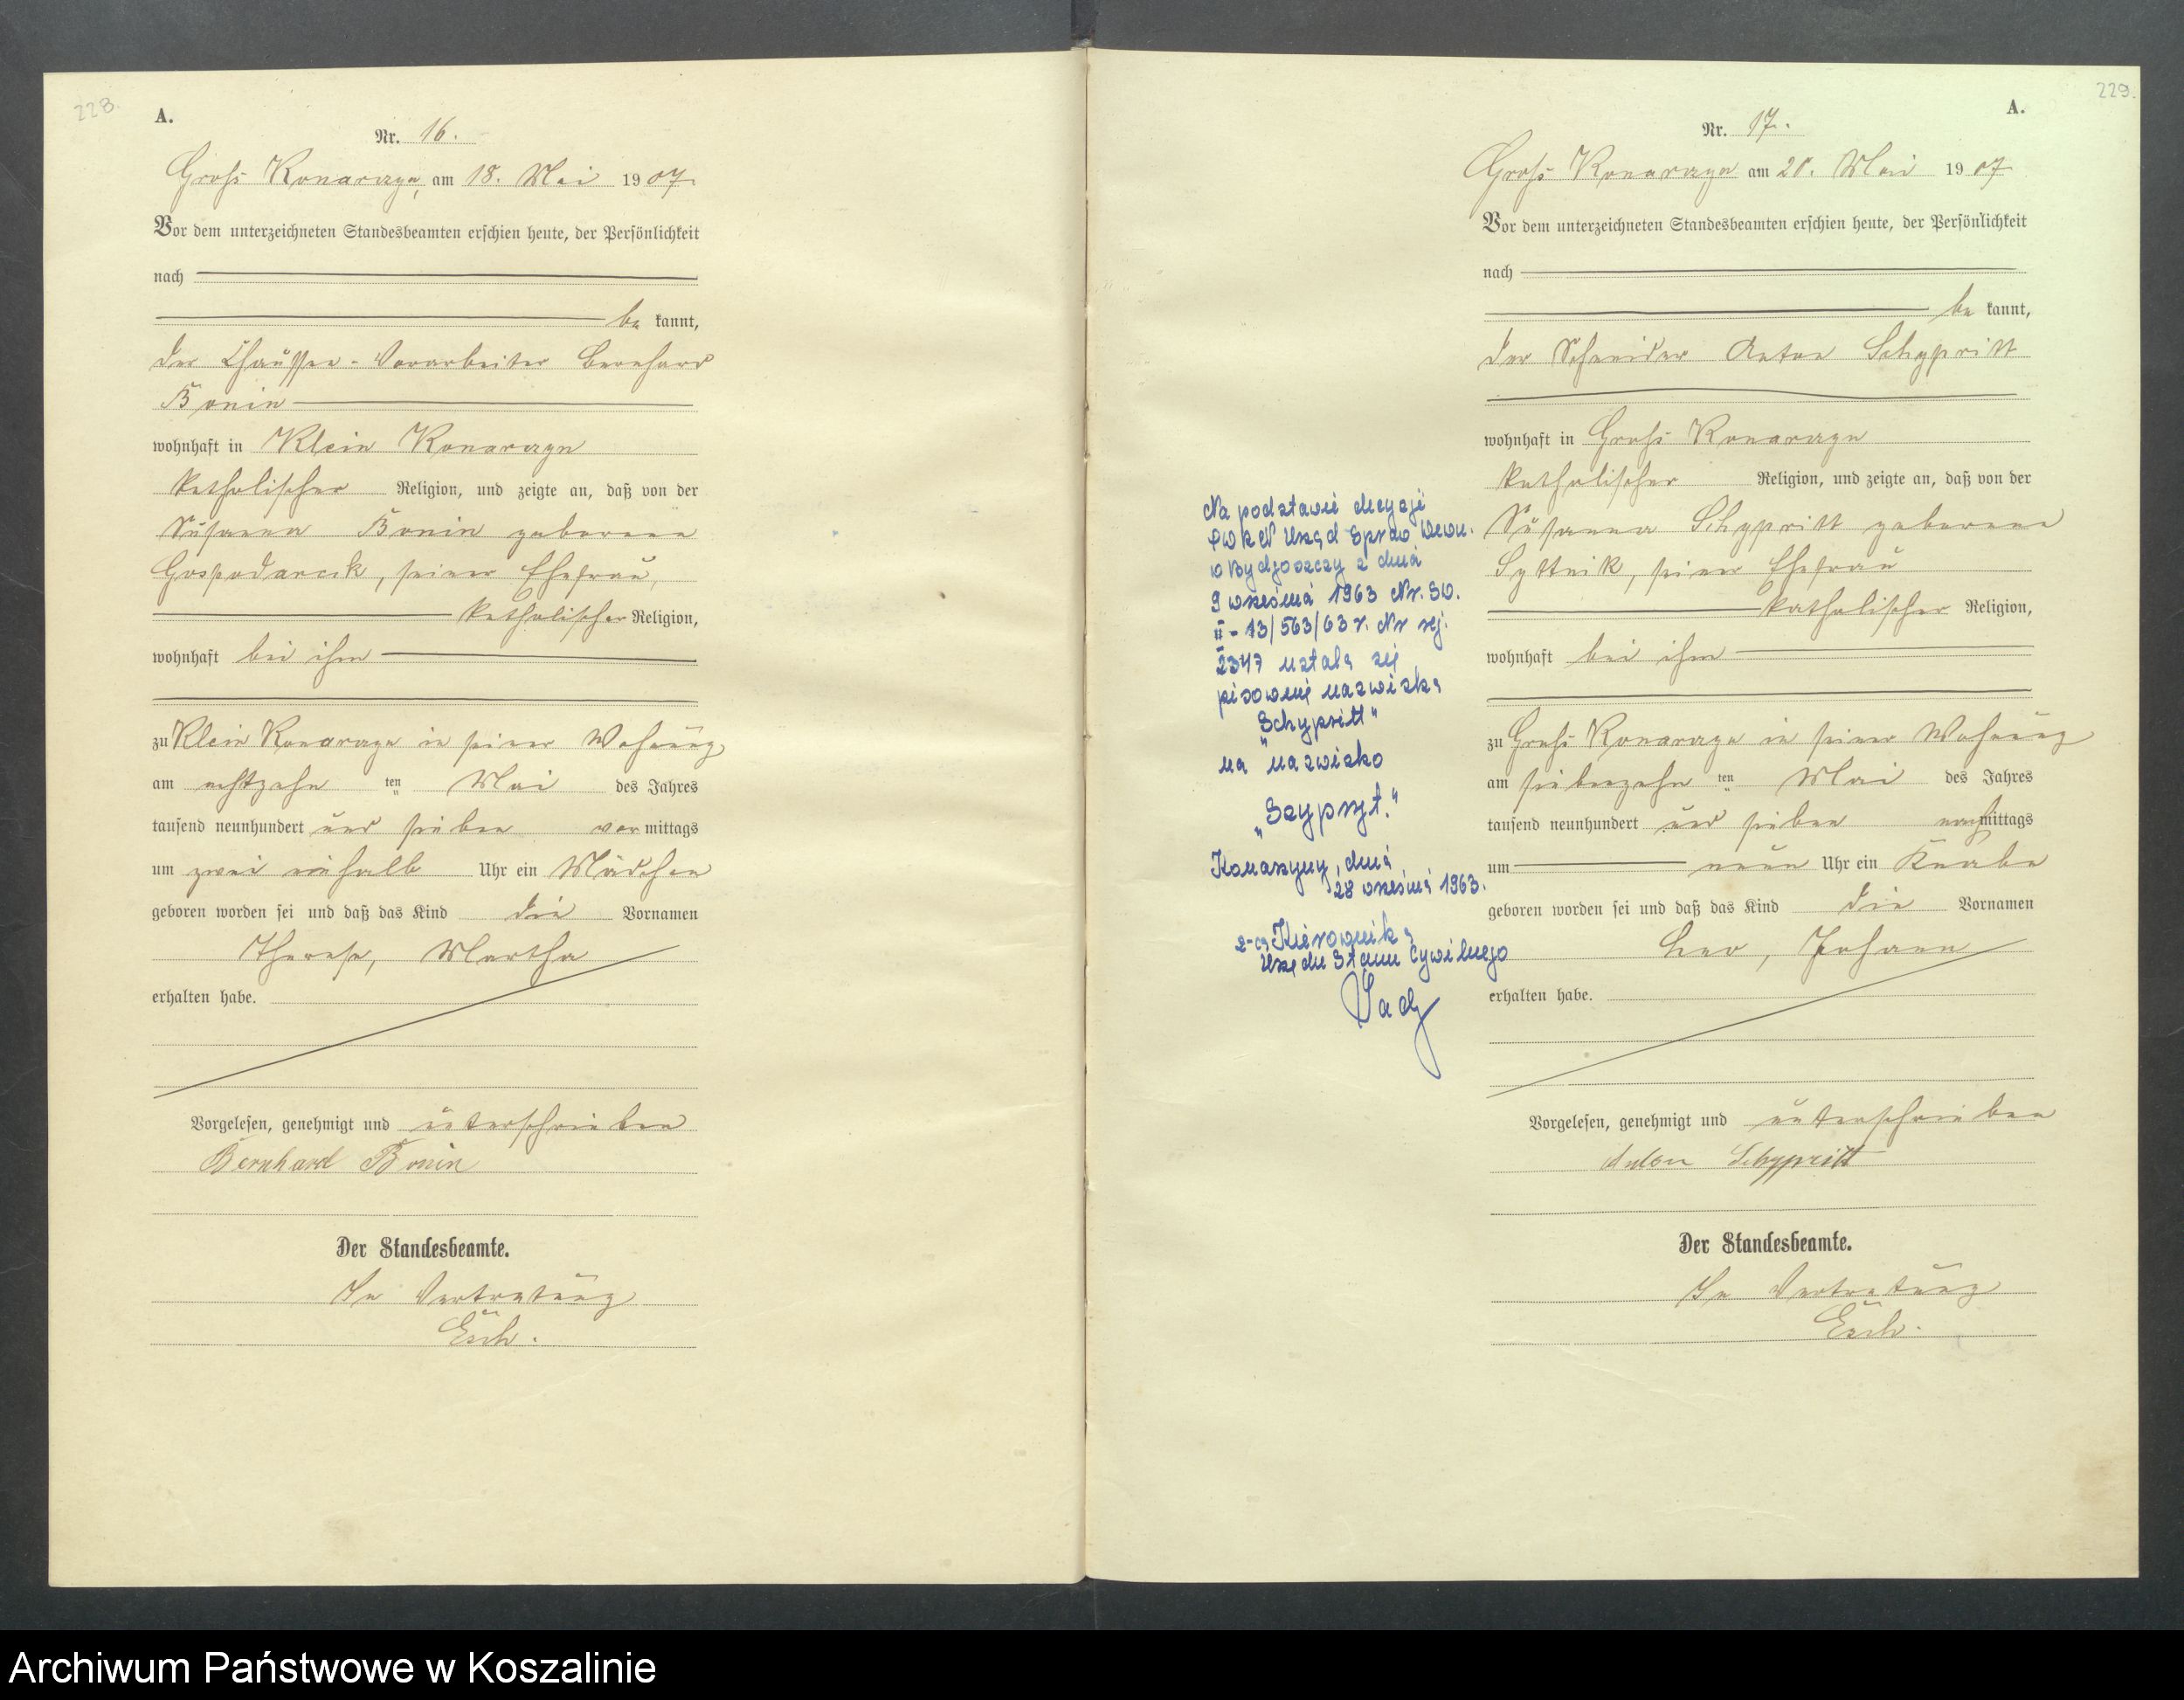 228.
A.
Nr. 16.
Groß Konarczyn, am 18. Mai 1907.
Vor dem unterzeichneten Standesbeamten erschien heute, der Persönlichkeit
nach
be kannt,
der Chaussee-Vorarbeiter Bernhard
Bonin
wohnhaft in Klein Konarczyn
katholischer Religion, und zeigte an, daß von der
Susanna Bonin geborene
Gospodarek, seiner Ehefrau,
katholischer Religion,
wohnhaft bei ihm
zu Klein Konarczyn in seiner Wohnung
am achtzehn ten Mai des Jahres
tausend neunhundert und sieben vor mittags
um zwei einhalb Uhr ein Mädchen
geboren worden sei und daß das Kind die Vornamen
Therese, Martha
erhalten habe.
Vorgelesen, genehmigt und unterschrieben
Bernhard Bonin
Der Standesbeamte.
In Vertretung
229.
A.
Nr. 17.
Groß Konarczyn am 20. Mai 1907
Vor dem unterzeichneten Standesbeamten erschien heute, der Persönlichkeit
nach
be kannt,
der Schneider Anton Schypritt
wohnhaft in Groß Konarczyn
katholischer Religion, und zeigte an, daß von der
Susanna Schypritt geborene
seiner Ehefrau
katholischer Religion,
wohnhaft bei ihm
zu Groß Konarczyn in seiner Wohnung
am siebenzehn ten Mai des Jahres
tausend neunhundert und sieben nachmittags
um neun Uhr ein Knabe
geboren worden sei und daß das Kind die Vornamen
Leo, Johann
erhalten habe.
Vorgelesen, genehmigt und unterschrieben
Anton Schypritt
Der Standesbeamte.
In Vertretung
Na podstawie decyzji
Urząd Spraw Wewn.
w Bydgoszczy z dnia
9 września 1963 Nr. SW.
II-13/563/63 r. Nr rej.
2347 ustala się
pisownię nazwiska
"Schypritt"
na nazwisko
"Szypryt."
Konarzyny, dnia
28 września 1963.
z-ca Kierownika
Urzędu Stanu Cywilnego
Archiwum Państwowe w Koszalinie